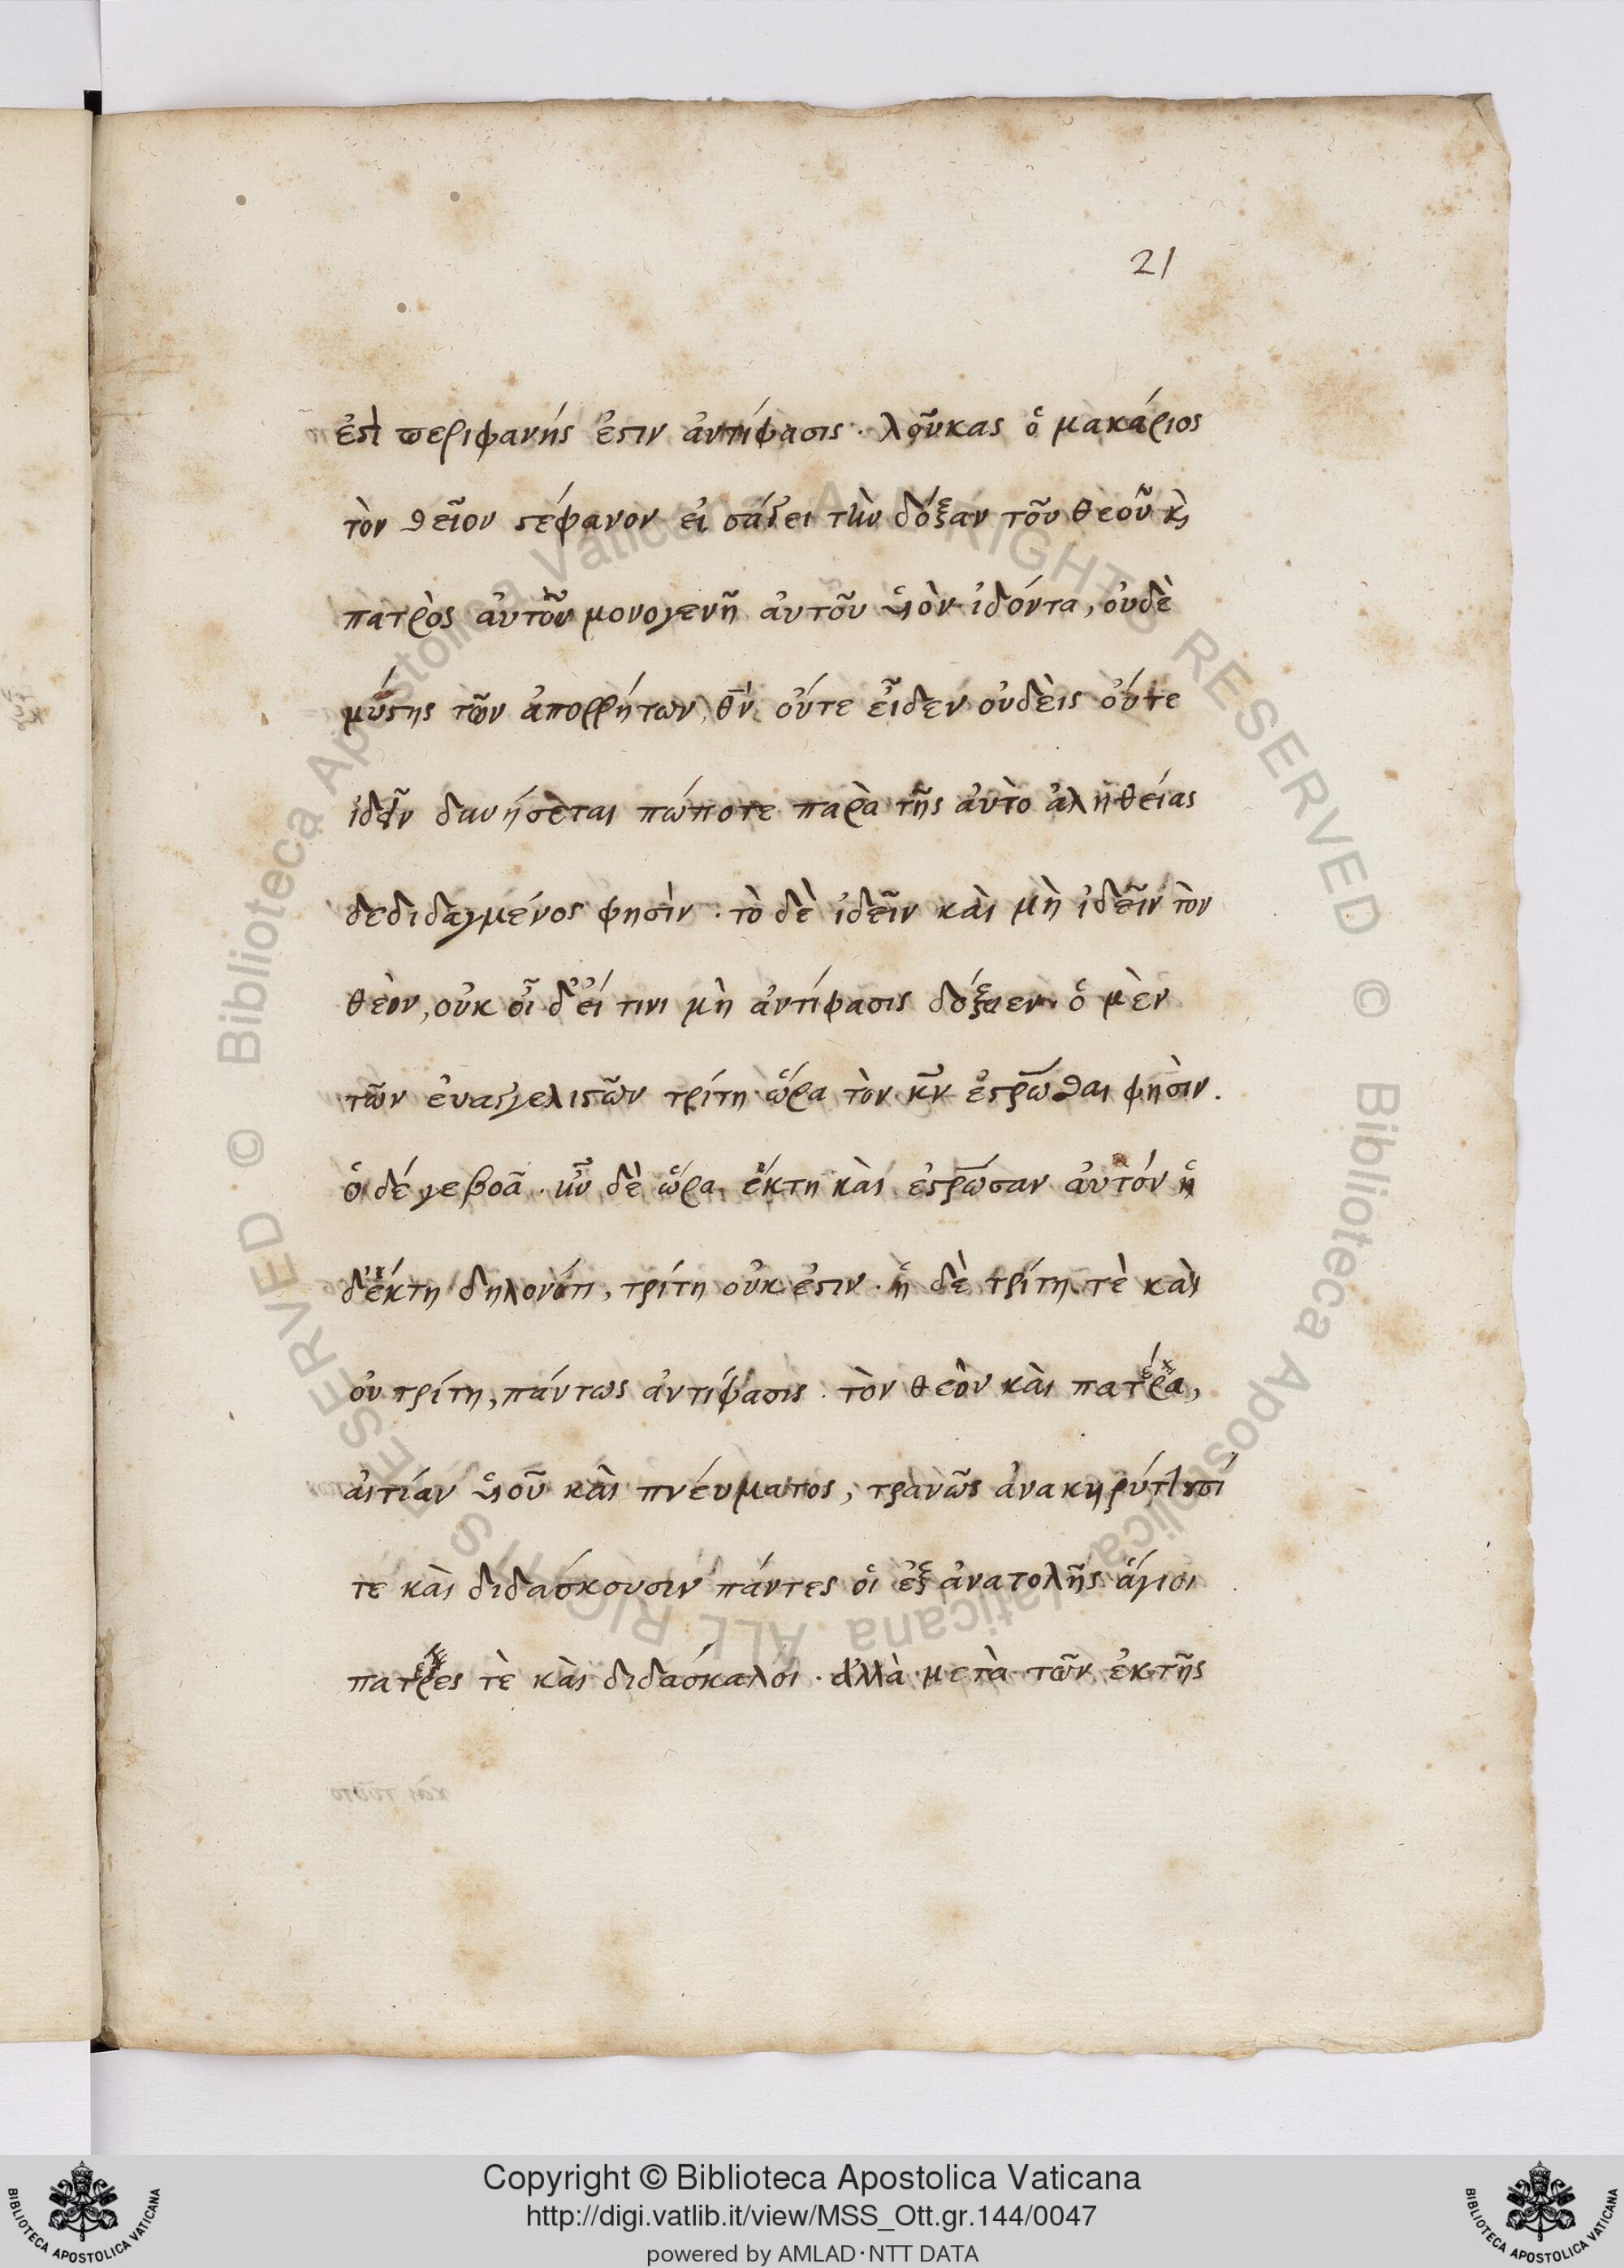 21
ἐστὶ περιφανής ἐστιν ἀντίφασις · λοῦκας ὁ μακάριος
τὸν θεῖον στέφανον εἰσάγει τὴν δόξαν τοῦ θεοῦ κὶ
πατρὸς ἀυτὸν μονογενῆ ἀυτοῦ υἱὸν ἰδόντα, οὐδὲ
μύστης τῶν ἀποῤῥήτων, θν οὔτε εἶδεν οὐδὲις οὔτε
ἰδεῖν δυνήσεται πώποτε παρὰ τῆς ἀυτὸ ἀληθείας
δεδιδαγμένος φησὶν · τὸ δὲ ἰδεῖν κὰι μὴ ἰδεῖν τὸν
θεὸν, οὐκ οἶ δ' εἴ τινι μὴ ἀντίφασις δόξειεν. ὁ μὲν
τῶν ἐυαγγελιστῶν τρίτη ὥρα τὸν κν ἐστρωθαι φησὶν.
ὁ δέ γε βοᾶ · ἦν δὲ ὥρα ἕκτη κὰι ἐστρωσαν ἀυτόν ἡ
δ' ἕκτη δηλονότι, τρίτη οὐκ ἐστιν · ἡ δὲ τρίτη τὲ κὰι
οὐ τρίτη, πάντως ἀντίφασις · τὸν θεὸν κὰι πατέρα,
ἀιτίαν υἱοῦ κὰι πνέυματος, τρανῶς ἀνακηρύττουσί
τε κὰι διδάσκουσιν πάντες οἱ ἐξ ἀνατολῆς ἅγιοι
πατέρες τὲ κὰι διδάσκαλοι · ἀλλὰ μετὰ τῶν ἐκ τῆς
Copyright © Biblioteca Apostolica Vaticana
http://digi.vatlib.it/view/MSS_Ott.gr.144/0047
powered by AMLAD·NTT DATA
BIBLIOTECA APOSTOLICA VATICANA
BIBLIOTECA APOSTOLICA VATICANA
© Biblioteca Apostolica Vaticana ALL RIGHTS RESERVED
© Biblioteca Apostolica Vaticana ALL RIGHTS RESERVED